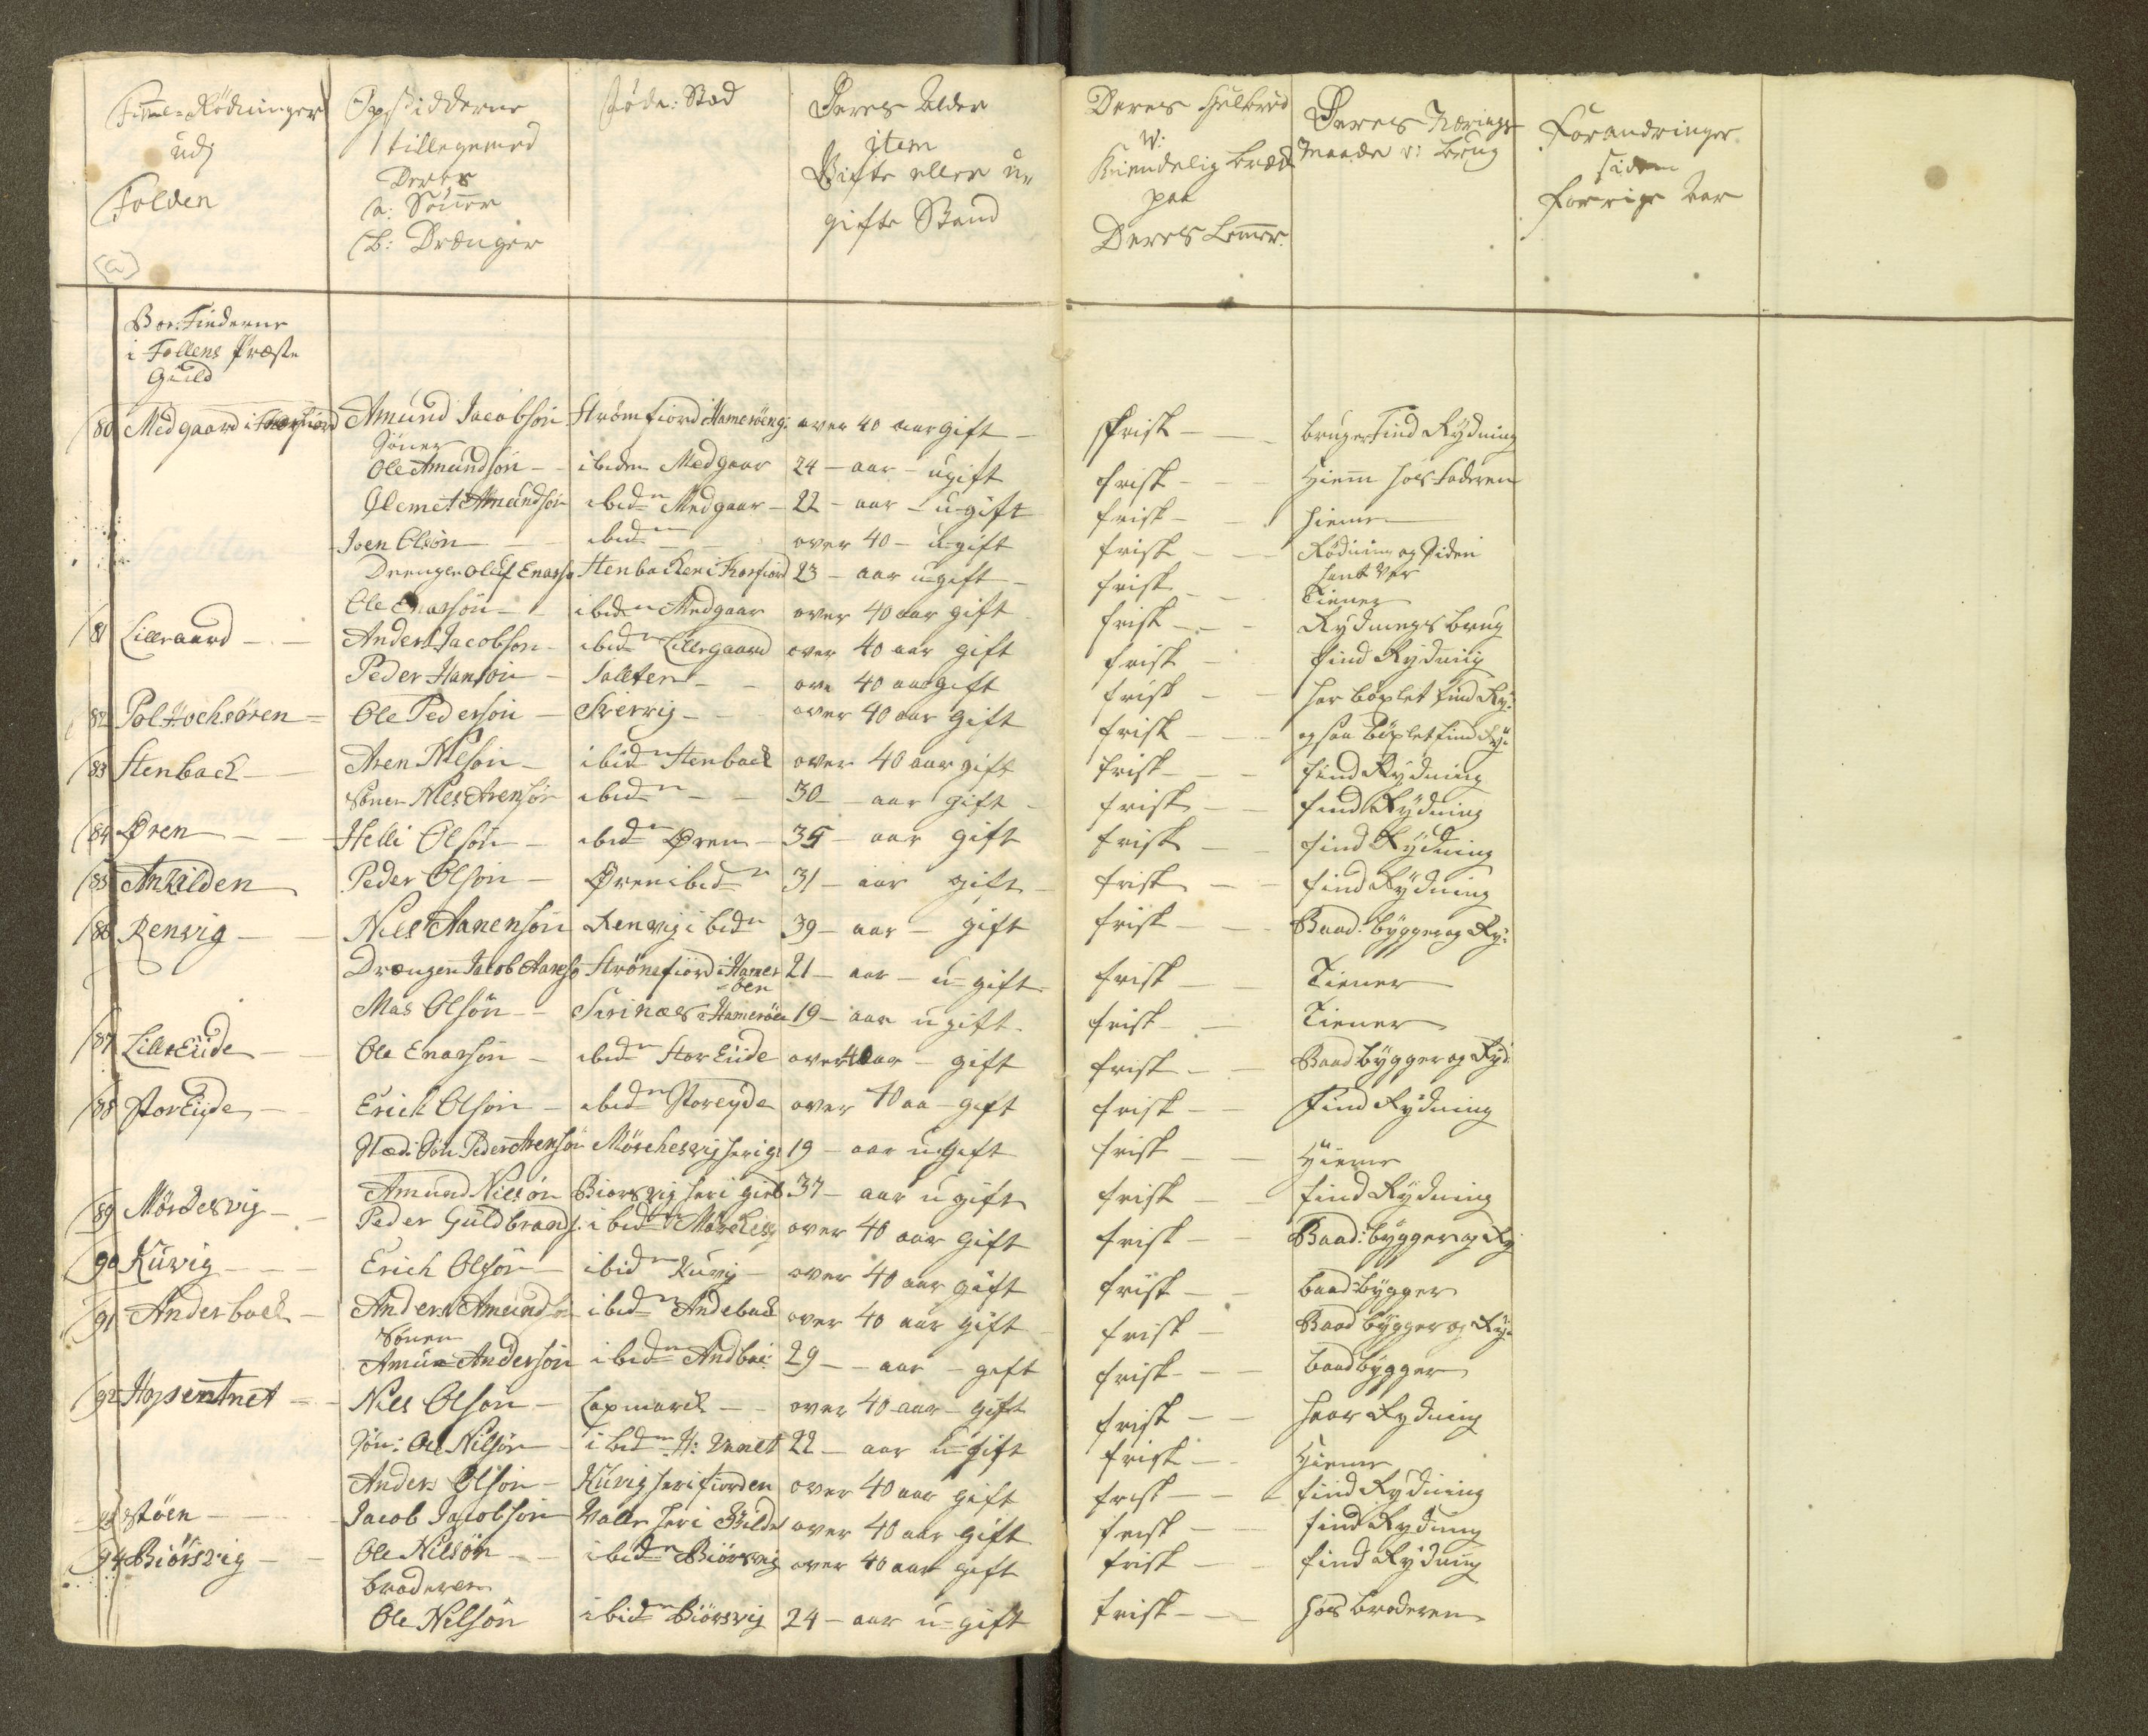 Finne-Rödninger
udj
Folden
Opsidderne
tillegemed
Deres
a: Sönner
b: Drænger
Føde: Stæd
Deres Alder
item
Gifte eller u-
gifte Stand
Deres Helbred
v:
Kiendelig bræk
paa
Deres Lemmer.
Deres Nærings
Maade v: brug
Forandringer
siden
forrige Aar
Boe: Finderne
i Follens Præste
Gield
80 Medgaard i Amund Jacobsön Strömfiord i Hameröe over 40 aar gift - frisk - bruger Find Rydning
Söner
Ole Amundsön - ibidem Medgaar 24 - aar - ugift frisk - Hiem hos Faderen
Clemet Amundsön ibidm Medgaar - 22 - aar - u-gift frisk - hieme
Joen Olsön - ibidm over 40 - u-gift frisk - Rödning og siden
Drengen Oluf Enarsö Stenbacken i Korsfiord 23 - aar u-gift - frisk - Tiener
Ole Enarsön - ibidm Medgaar over 40 aar gift frisk - Rydnings brug
81 Lillegaard - Anders Jacobson - ibidm Lillegaard over 40 aar gift frisk - find Rydning
Peder Hansön - Saltten - over 40 aar gift frisk - har böxlet find Ry:
82 Pollochsören - Ole Pedersön - Sverrig - over 40 aar gift frisk - og saa böxlet find Ry:
83 Stenback - Aren Nilsön - ibidm Stenback over 40 aar gift frisk - find Rydning
Sönen Nils Arensön ibidm - 30 - aar gift - frisk - find Rydning
84 Øren - Helli Olsön - ibidm Øren - 35 - aar gift frisk - find Rydning
85 Peder Olsön - Øren ibidm 31 - aar gift - frisk - find Rydning
86 Renvig - Niels Aanensön Renvig ibidm 39 - aar - gift frisk - Baad: bygger og Ry:
Drængen Jacob Strömsfiord i Hamer
öen 21 - aar - u-gift frisk - Tiener
Mas Olsön - i Hameröe 19 - aar ugift - frisk - Tiener
87 LilleEide - Ole Enarsön - ibidm StorEide over 40 aar - gift frisk - Baad bygger og Ryd:
88 StorEijde - Erich Olsön - ibidm Storeyde over 40 aa - gift frisk - Find Rydning
Sted: Sön Peder Arensön Mörchesvig her i g: 19 - aar ugift frisk - Hieme
Amund Nielsön Biorsvig her i gield 37 - aar ugift frisk - find Rydning
89 Mörckesvig - Peder Guldbrands: ibidm over 40 aar gift frisk - Baad: bygger og Ry:
90 Kuvig - Erich Olsön - ibidm Kuvig - over 40 aar gift frisk - baad bygger
91 Anderback - Anders Amundsön ibidm Andeback over 40 aar gift - frisk - Baad bygger og Ry:
Sönen
Amun Andersön ibidm 29 - aar - gift frisk - baad bygger
92 - Nils Olson - Lapmarck - over 40 aar - gift frisk - haar Rydning
Sön: Ole Nilsön - ibidm H: Vanet 22 - aar u-gift frisk - Hieme
Anders Olsön - Kuvig her i fiorden over 40 aar gift frisk - find Rydning
93 Stöen - Jacob Jacobsön Valle her i Gilde over 40 aar gift frisk - find Rydning
94 Biörsvig - Ole Nilsön - ibidm Biörsvig over 40 aar gift frisk - find Rydning
broderen
Ole Nilsön ibidm Biörsvig 24 - aar u-gift frisk - hos broderen